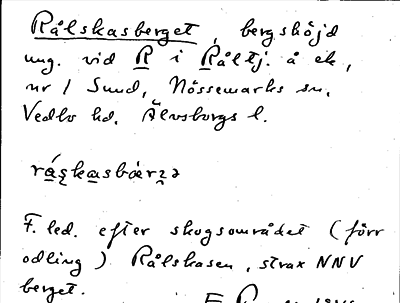 Rålskasberget, bergshöjd
ung. vid R i Råltj. å ek,
nr 1 Sund, Nössemarks sn.
Vedbo hd. Älvsborgs l.
ráskasbärʒə
F. led. efter skogsområdet (förr
odling) Rålskasen, strax NNV
berget.